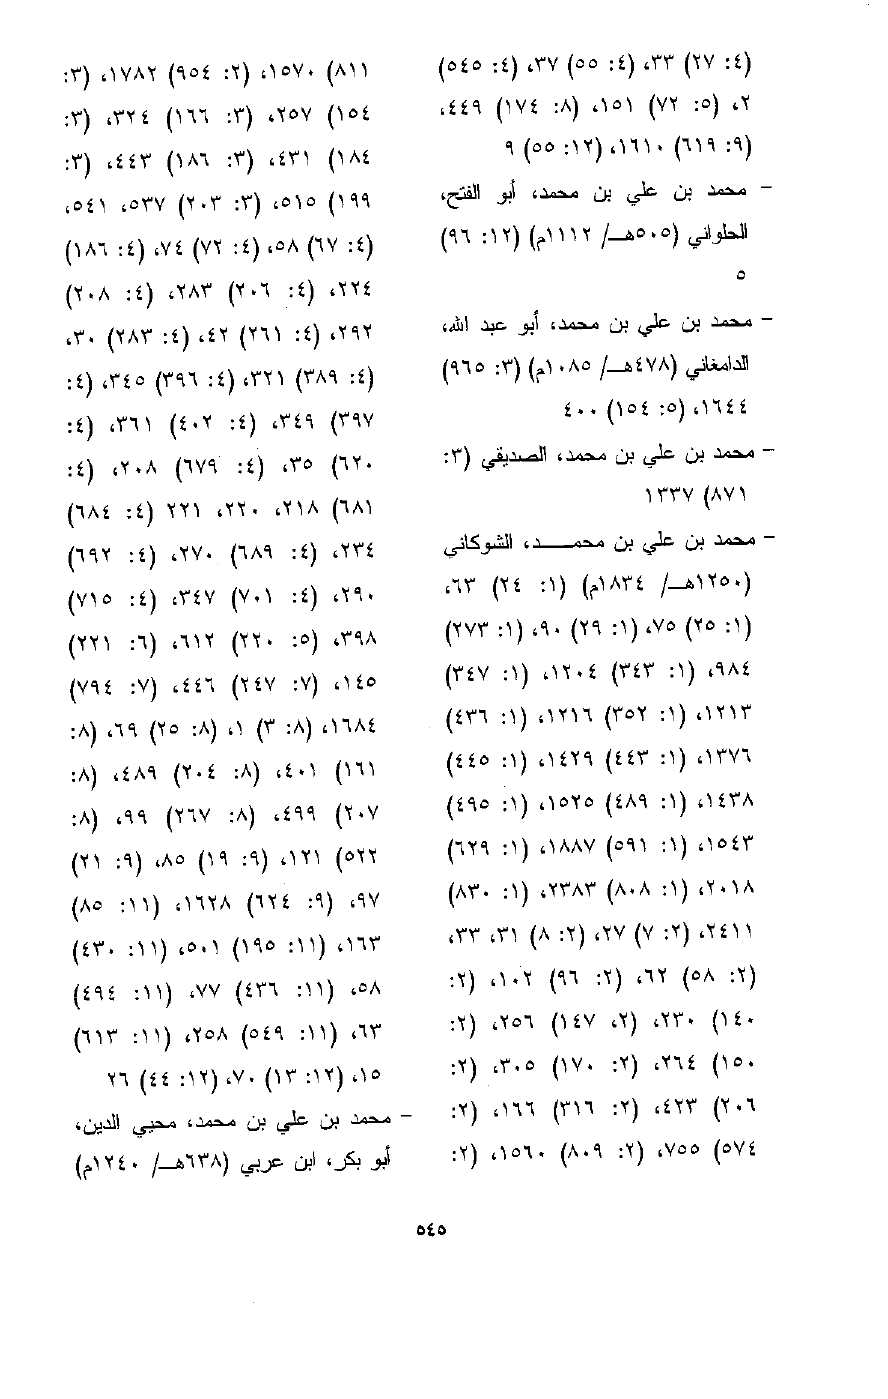 (٤: ٢٧) ٣٣، (٤: ٥٥) ٣٧، (٤: ٥٤٥)
٢، (٥: ٧٢) ١٥١، (٨: ١٧٤) ٤٤٩،
(٩: ٦١٩) ١٦١٠، (١٢: ٥٥) ٩
- محمد بن علي بن محمد، أبو الفتح،
الحلواني (٥٠٥هـ/ ١١١٢م) (١٢: ٩٦)
٥
- محمد بن علي بن محمد، أبو عبد الله،
الدامغاني (٤٧٨هـ/ ١٠٨٥م) (٣: ٩٦٥)
١٦٤٤، (٥: ١٥٤) ٤٠٠
- محمد بن علي بن محمد، الصديقي (٣:
٨٧١) ١٣٣٧
- محمد بن علي بن محمـــد، الشوكاني
(١٢٥٠هـ/ ١٨٣٤م) (١: ٢٤) ٦٣،
(١: ٢٥) ٧٥، (١: ٢٩) ٩٠، (١: ٢٧٣)
٩٨٤، (١: ٣٤٣) ١٢٠٤، (١: ٣٤٧)
١٢١٣، (١: ٣٥٢) ١٢١٦، (١: ٤٣٦)
١٣٧٦، (١: ٤٤٣) ١٤٢٩، (١: ٤٤٥)
١٤٣٨، (١: ٤٨٩) ١٥٢٥، (١: ٤٩٥)
١٥٤٣، (١: ٥٩١) ١٨٨٧، (١: ٦٢٩)
٢٠١٨، (١: ٨٠٨) ٢٣٨٣، (١: ٨٣٠)
٢٤١١، (٢: ٧) ٢٧، (٢: ٨) ٣١، ٣٣،
(٢: ٥٨) ٦٢، (٢: ٩٦) ١٠٢، (٢:
١٤٠) ٢٣٠، (٢، ١٤٧) ٢٥٦، (٢:
١٥٠) ٢٦٤، (٢: ١٧٠) ٣٠٥، (٢:
٢٠٦) ٤٢٣، (٢: ٣١٦) ١٦٦، (٢:
٥٧٤) ٧٥٥، (٢: ٨٠٩) ١٥٦٠، (٢:
٨١١) ١٥٧٠، (٢: ٩٥٤) ١٧٨٢، (٣:
١٥٤) ٢٥٧، (٣: ١٦٦) ٣٢٤، (٣:
١٨٤) ٤٣١، (٣: ١٨٦) ٤٤٣، (٣:
١٩٩) ٥١٥، (٣: ٢٠٣) ٥٣٧، ٥٤١،
(٤: ٦٧) ٥٨، (٤: ٧٢) ٧٤، (٤: ١٨٦)
٢٢٤، (٤: ٢٠٦) ٢٨٣، (٤: ٢٠٨)
٢٩٢، (٤: ٢٦١) ٤٢، (٤: ٢٨٣) ٣٠،
(٤: ٣٨٩) ٣٢١، (٤: ٣٩٦) ٣٤٥، (٤:
٣٩٧) ٣٤٩، (٤: ٤٠٢) ٣٦١، (٤:
٦٢٠) ٣٥، (٤: ٦٧٩) ٢٠٨، (٤:
٦٨١) ٢١٨، ٢٢٠، ٢٢١ (٤: ٦٨٤)
٢٣٤، (٤: ٦٨٩) ٢٧٠، (٤: ٦٩٢)
٢٩٠، (٤: ٧٠١) ٣٤٧، (٤: ٧١٥)
٣٩٨، (٥: ٢٢٠) ٦١٢، (٦: ٢٢١)
١٤٥، (٧: ٢٤٧) ٤٤٦، (٧: ٧٩٤)
١٦٨٤، (٨: ٣) ١، (٨: ٢٥) ٦٩، (٨:
١٦١) ٤٠١، (٨: ٢٠٤) ٤٨٩، (٨:
٢٠٧) ٤٩٩، (٨: ٢٦٧) ٩٩، (٨:
٥٢٢) ١٢١، (٩: ١٩) ٨٥، (٩: ٢١)
٩٧، (٩: ٦٢٤) ١٦٢٨، (١١: ٨٥)
١٦٣، (١١: ١٩٥) ٥٠١، (١١: ٤٣٠)
٥٨، (١١: ٤٣٦) ٧٧، (١١: ٤٩٤)
٦٣، (١١: ٥٤٩) ٢٥٨، (١١: ٦١٣)
١٥، (١٢: ١٣) ٧٠، (١٢: ٤٤) ٢٦
- محمد بن علي بن محمد، محيي الدين،
أبو بكر، ابن عربي (٦٣٨هـ/ ١٢٤٠م)
٥٤٥